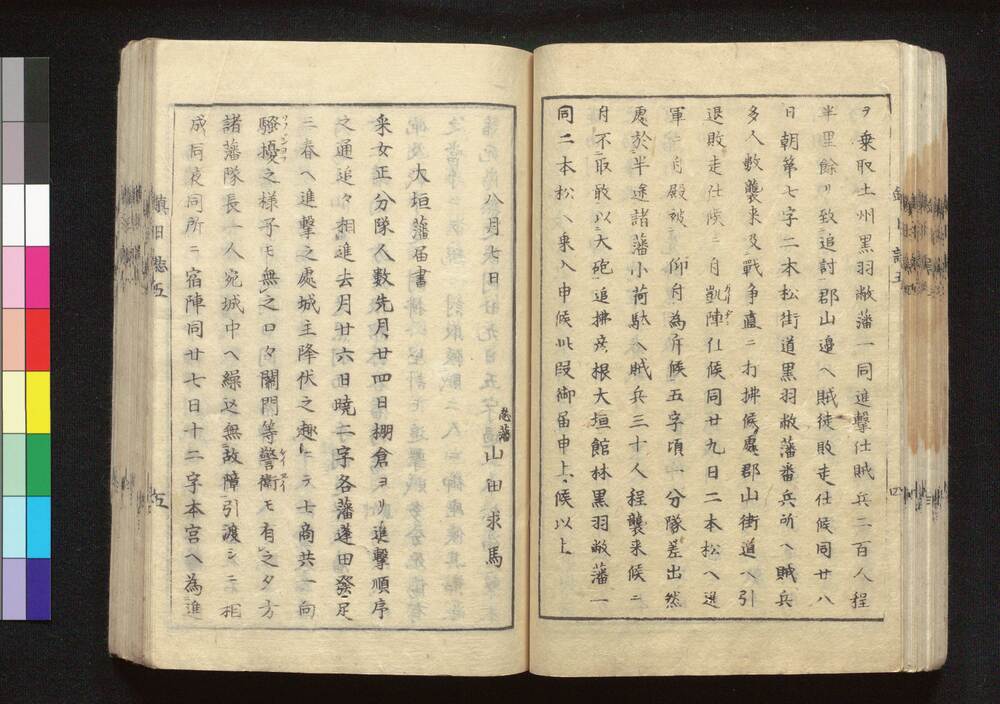 ヲ乗取土州黒羽敝藩一同進撃仕賊兵二百人程
半里餘リ致追討郡山邊ヘ賊徒敗走仕候同廿八
日朝第七字二本松街道黒羽敝藩番兵所ヘ賊兵
多人數襲来及戰争直ニ打拂候處郡山街道ヘ引
退敗走仕候ニ付凱陣仕候同廿九日二本松ヘ進
軍ニ付殿被 仰付為斥候五字頃一分隊差出然
處於半途諸藩小荷駄ヘ賊兵三十人程襲来候ニ
付不取敢以大砲追拂彦根大垣館林黒羽敝藩一
同二本松ヘ乗入申候此段御届申上候以上
八月七日
忍藩 山田求馬
大垣藩届書
采女正分隊人數先月廿四日棚倉ヨリ進撃順序
之通追々相進去月廿六日暁二字各藩蓬田發足
三春ヘ進撃之處城主降伏之趣ニテ士商共一向
騒擾之様子モ無之口々關門等警衛モ有之夕方
諸藩隊長一人宛城中ヘ繰込無故障引渡シニ相
成同夜同所ニ宿陣同廿七日十二字本宮ヘ為進